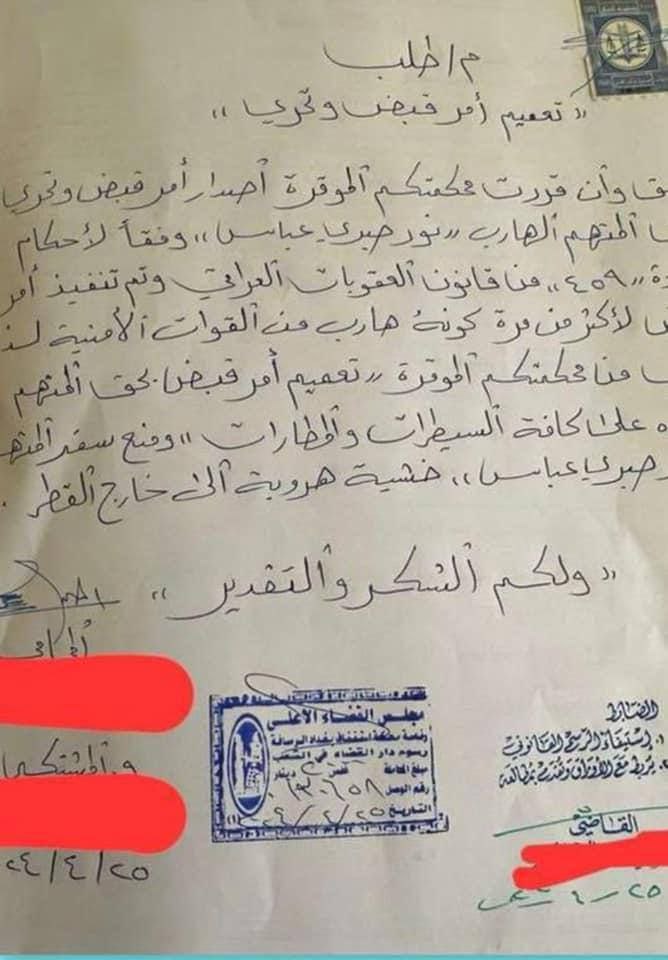 م / طلب
« تعميم أمر قبض وتحري »
وأن قررت محكمتكم الموقرة أصدار أمر قبض وتحري
المتهم الهارب « نور صبري عباس » وفقاً لأحكام
« ٤٥٩ » من قانون العقوبات العراقي وتم تنفيذ أمر
لأكثر من مرة كونه هارب من القوات الأمنية لذ
من محكمتكم الموقرة « تعميم أمر قبض بحق المتهم
على كافة السيطرات والمطارات » ومنع سفر المتهم
صبري عباس » خشية هروبة ألى خارج القطر .
« ولكم الشكر والتقدير »
المحامي
و. المشتكي
٢٤/٤/٢٥
مجلس القضاء الأعلى
رئاسة محكمة استئناف بغداد الرصافة
رسوم دار القضاء في الشعب
مبلغ المعاملة
دينار
رقم الوصل
التاريخ
الضابط
١. إستيفاء الرسم القانوني
٢. يربط مع الأوراق وتقدم بمطالعة
القاضي